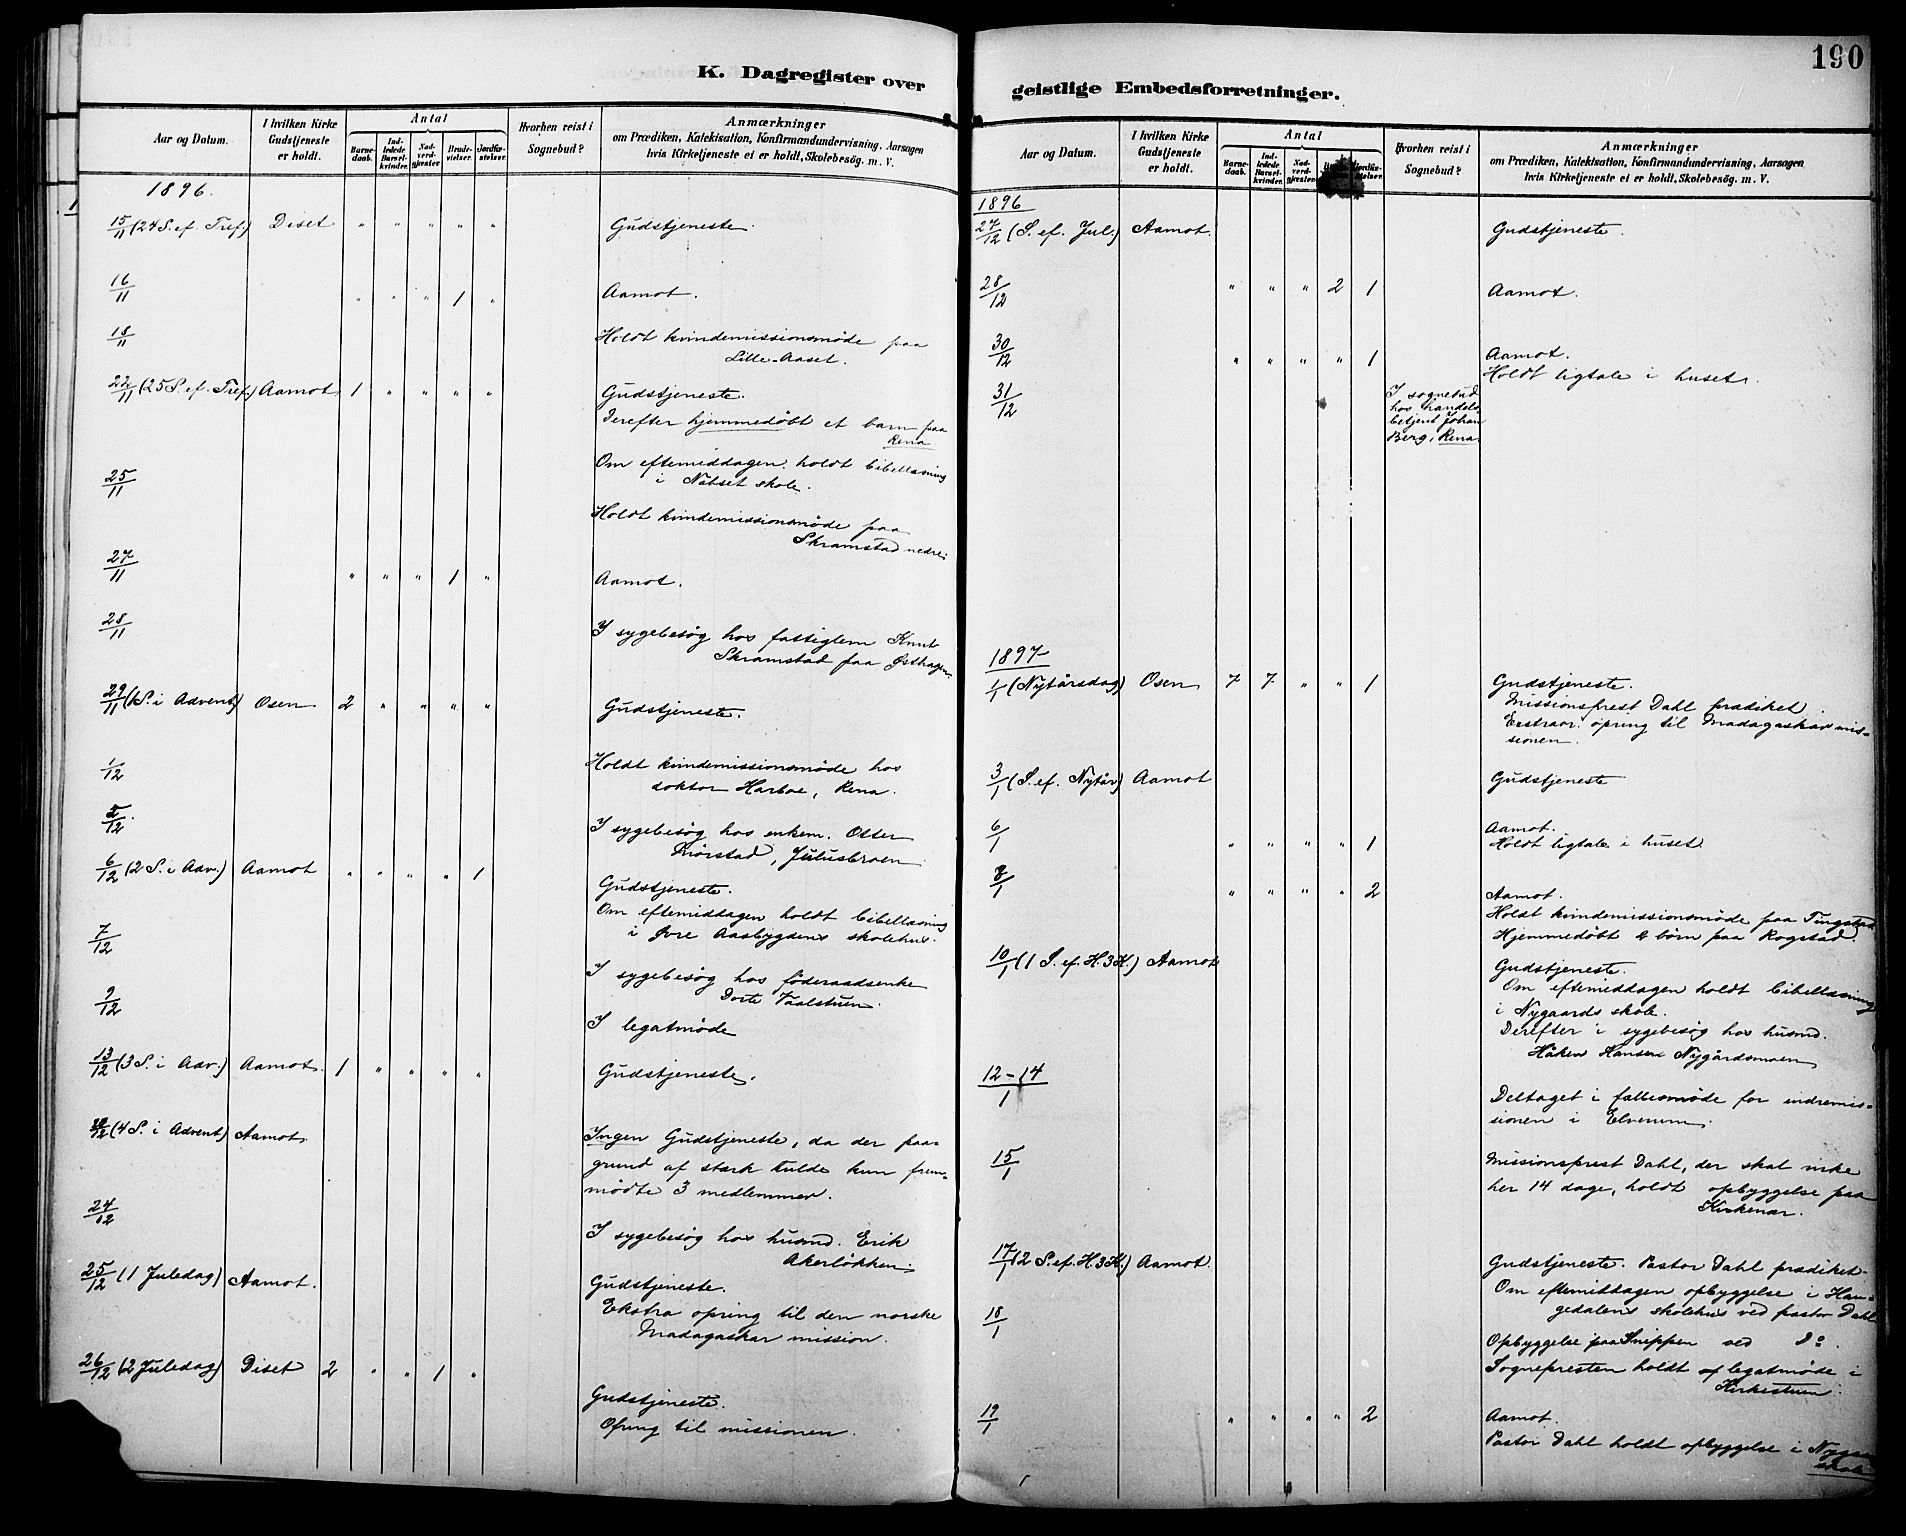 K. Dagregister over
Aar og Datum.
I hvilken Kirke Gudstjeneste er holdt.
Antal
Barnedaab.
Indledede Barselkvinder.
Nadverdgjester.
Brudevielser.
Jordfæstelser.
Hvorhen reist i Sognebud?
Anmærkninger
om Prædiken, Katekisation, Konfirmandundervisning, Aarsagen
hvis Kirketjeneste ei er holdt, Skolebesög. m. V.
1896.
15/11 (24 S. ef. Tref.) Diset " " " " " Gudstjeneste.
16/11 " " " 1 " Aamot.
18/11 Holdt kvindemissionsmøde paa
Lille-Aaset.
22/11 (25 S. ef. Tref.) Aamot 1 " " " " Gudstjeneste.
Derefter hjemmedøbt et barn paa
Rena
Om eftemiddagen holdt bibellæsning
i Næbset skole.
25/11 Holdt kvindemissionsmøde paa
Skramstad nedre.
27/11 " " " 1 " Aamot.
28/11 I sygebesøg hos fattiglem Knut
Skramstad paa Østhagen
29/11 (1 S. i Advent) Osen 2 " " " " Gudstjeneste.
1/12 Holdt kvindemissionsmøde hos
doktor Harboe, Rena.
5/12 I sygebesøg hos enkem. Otter
Lørstad, Julusbroen.
6/12 (2 S. i Adv.) Aamot " " " " 1 Gudstjeneste.
Om eftemiddagen holdt bibellæsning
i Øvre Aasbygdens skolehus.
7/12 I sygebesøg hos føderaadsenke
Dorte Vaalstuen.
9/12 I legatmøde
13/12 (3 S. i Adv.) Aamot. 1 " " " " Gudstjeneste.
20/12 (4 S. i Advent) Aamot. Ingen Gudstjeneste, da der paa
grund af stærk kulde kun frem-
mødte 3 medlemmer.
24/12 I sygebesøg hos husmd. Erik
Akerløkken.
25/12 (1 Juledag) Aamot. Gudstjeneste.
Ekstra opring til den norske
Madagaskar mission.
26/12 (2 Juledag) Diset 2 " " 1 " Gudstjeneste.
Ofring til missionen.
geistlige Embedsforretninger.
190
Aar og Datum.
I hvilken Kirke Gudstjeneste er holdt.
Antal
Barnedaab.
Indledede Barselkvinder.
Nadverdgjester.
Hvorhen reist i Sognebud?
Anmærkninger
om Prædiken, Katekisation, Konfirmandundervisning, Aarsagen
hvis Kirketjeneste ei er holdt, Skolebesög. m. V.
1896
27/12 (S. ef. Jul.) Aamot. Gudstjeneste.
28/12 " " " 2 1 Aamot.
30/12 " " " " 1 Aamot.
Holdt ligtale i huset.
31/12 I sognebud
hos handels
betjent Johan
Berg, Rena
1897
1/1 (Nytårsdag) Osen 7 7 " " 1 Gudstjeneste.
Missionsprest Dahl prædiket.
Exstraor. opring til Madagaskar mis-
sionen.
3/1 (S. ef. Nytår) Aamot Gudstjeneste
6/1 " " " " 1 Aamot.
Holdt ligtale i huset
8/1 " " " " 2 Aamot.
Holdt kvindemissionsmøde paa Tingstad
Hjemmedøbt 2 børn paa Rogstad.
10/1 (1 S. ef. H.3K.) Aamot Gudstjeneste.
Om eftemiddagen holdt bibellæsning
i Nygaards skole.
Derefter i sygebesøg hos husmd.
Håken Hansen Nygårdsmoen
12-14/1 Deltaget i fællesmøde for indremis-
sionen i Elverum.
15/1 Missionsprest Dahl, der skal virke
her 14 dage, holdt opbyggelse paa
Kirkenær.
17/1 (2 S. ef. H.3K.) Aamot. Gudstjeneste. Pastor Dahl prædiket.
Om eftemiddagen opbyggelse i Hau-
gedalens skolehus ved pastor Dahl
18/1 Opbyggelse paa Snippen ved do.
Sognepresten holdt af legatmøde i
Kirkestuen.
19/1 " " " " 2 Aamot.
Pastor Dahl holdt opbyggelse i
skole